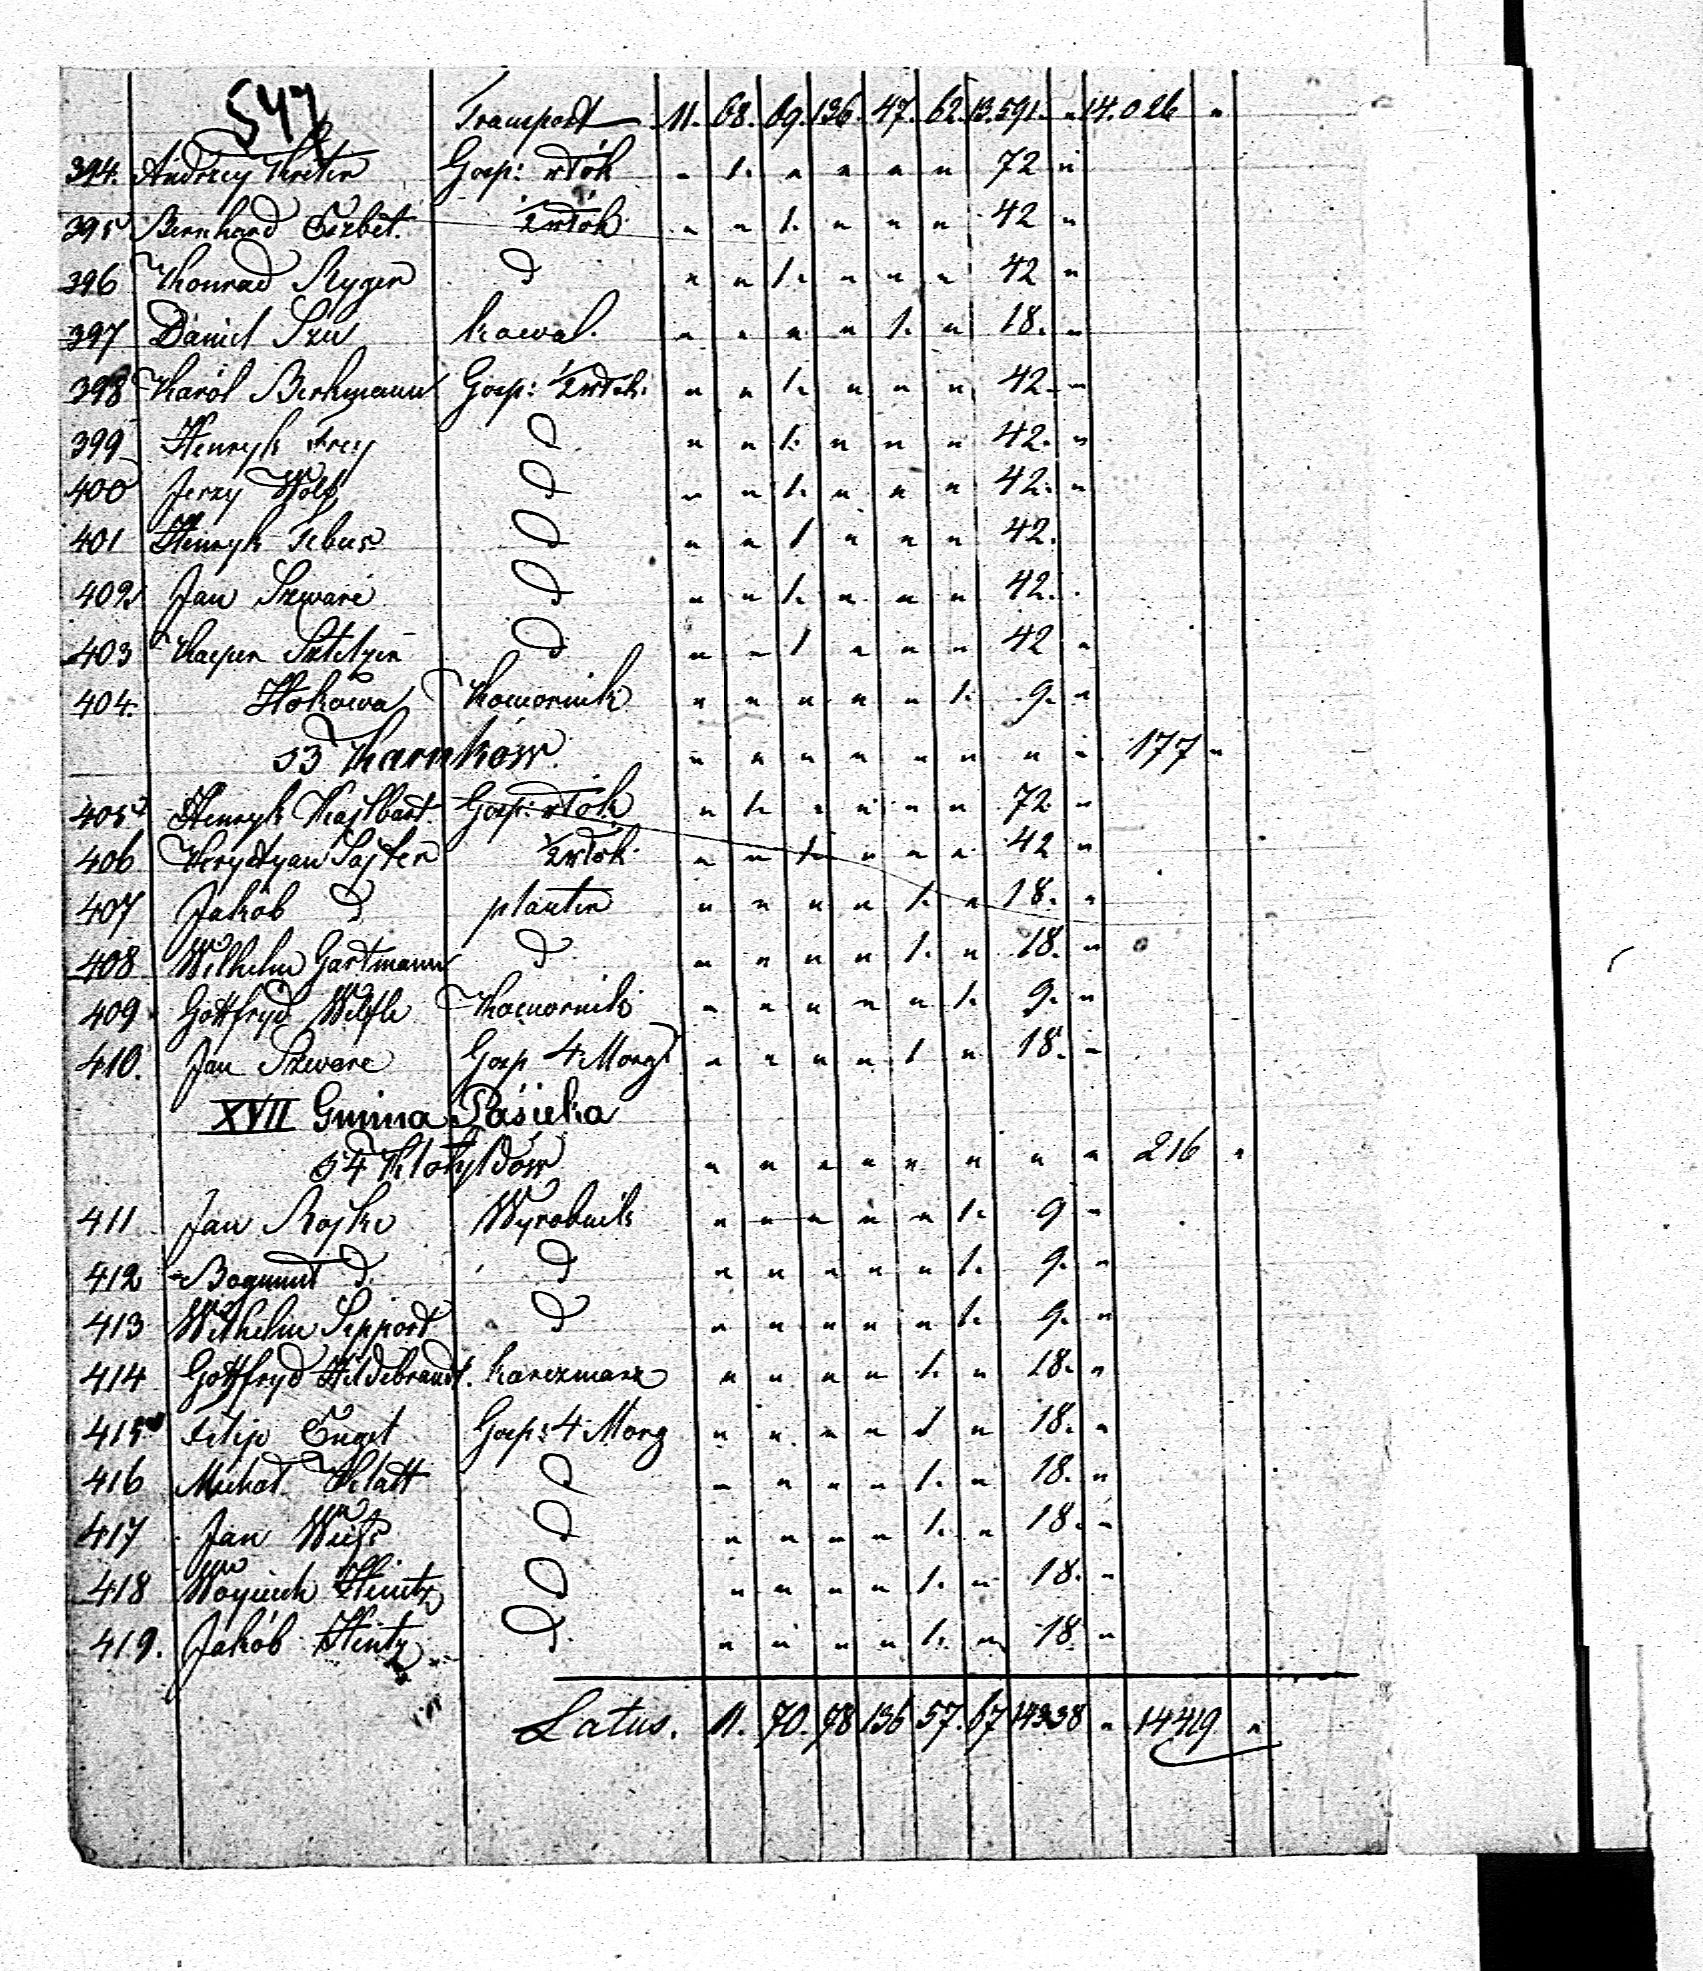 547
Transport 11. 68. 89. 136. 47. 62. 13.591. " 14.026 "
394. Andrzey Kreter Gosp: włók " 1. " " " " 72 "
395 Bernhard ½ włók " " 1. " " " 42 "
396 Konrad Ryger d " " 1. " " " 42 "
397 Daniel kowal. " " " " 1. " 18. "
398 Karól Berkmann Gosp: ½ włók. " " 1. " " " 42. "
399 Henryk Frey d " " 1. " " " 42. "
400 Jerzy Wolf d " " 1. " " " 42. "
401 Henryk Febus d " " 1 " " " 42.
402 Jan Szwarc d " " 1. " " " 42.
403 Kasper Sztelzer d " " 1 " " " 42 "
404. Hokowa Komornik " " " " " 1. 9. "
53 Karnków. " " " " " " " " 177 "
405 Henryk Kajlbart. Gosp: włók " 1. " " " " 72 "
406 Krystyan Sajter ½ włók " " 1. " " " 42 "
407 Jakób d planter " " " " 1. " 18. "
408 Wilhelm Gartmann d " " " " 1. " 18. "
409 Gottfryd Wilfle Komornik " " " " " 1. 9. "
410. Jan Szwarc Gosp 4 Morg " " " " 1 " 18. "
XVII Gmina Pasieka
54 Kłobyldów " " " " " " " " 216 "
411 Jan Rajke Wyrobnik " " " " " 1. 9 "
412 Bogumił d d " " " " " 1. 9. "
413 Wilhelm Sepport d " " " " " 1. 9. "
414 Gottfryd Hildebrandt. karczmarz " " " " 1. " 18. "
415 Filip Engel Gosp: 4 Morg " " " " 1 " 18. "
416 Michał Klatt d " " " " 1. " 18. "
417 Jan Weiss d " " " " 1. " 18. "
418 Woyciech Heintz d " " " " 1. " 18. "
419. Jakób Hintz d. " " " " 1. " 18. "
Latus. 11. 70. 98 136 57. 67 14338 " 14419 "